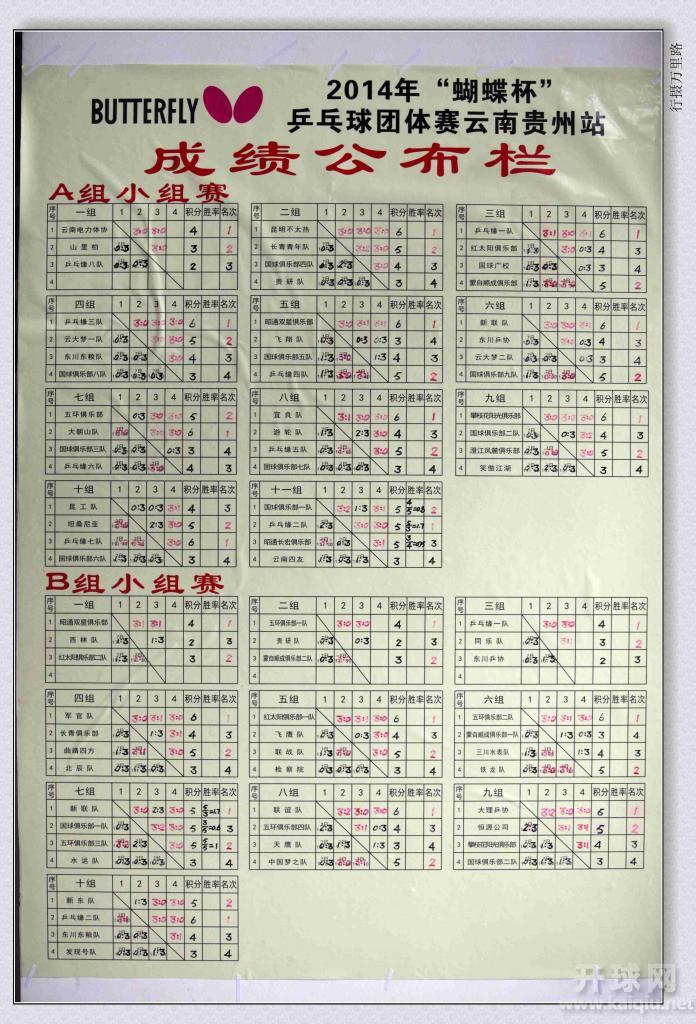 行摄万里路
BUTTERFLY
2014年“蝴蝶杯”
乒乓球团体赛云南贵州站
成绩公布栏
A组小组赛
序号 一组 1 2 3 4 积分 胜率 名次
1 云南电力体协 3:0 3:0 4 1
2 山里柏 0:3 3:0 3 2
3 乒乓缘八队 0:3 0:3 2 3
4
序号 二组 1 2 3 4 积分 胜率 名次
1 昆明不太热 3:0 3:0 3:0 6 1
2 长青青年队 0:3 5 2
3 国球俱乐部四队 0:3 3:0 4 3
4 贵研队 0:3 0:3 0:3 3 4
序号 三组 1 2 3 4 积分 胜率 名次
1 乒乓缘一队 3:1 3:0 3:1 6 1
2 红太阳俱乐部 1:3 3:0 0:3 4 3
3 国球广校 0:3 0:3 0:3 3 4
4 蒙自顺成俱乐部 1:3 3:0 3:0 5 2
四组 1 2 3 4 积分 胜率 名次
1 乒乓缘三队 3:0 3:0 3:0 6 1
2 云大梦一队 0:3 3:0 3:0 5 2
3 东川东粮队 0:3 0:3 3:0 4 3
4 国球俱乐部八队 0:3 0:3 0:3 3 4
五组 1 2 3 4 积分 胜率 名次
1 昭通双星俱乐部 3:0 3:1 3:1 6 1
2 飞翔队 0:3 0:3 0:3 3 4
3 国球俱乐部五队 1:3 1:3 4 3
4 乒乓缘四队 5 2
六组 1 2 3 4 积分 胜率 名次
1 新联队 3:0 3:0 3:1 6 1
2 东川乒协 0:3 0:3 4 3
3 云大梦二队 0:3 3 4
4 国球俱乐部九队 5 2
七组 1 2 3 4 积分 胜率 名次
1 五环俱乐部 0:3 3:0 3:0 5 2
2 大朝山队 3:0 3:0 3:0 6 1
3 国球俱乐部三队 0:3 0:3 0:3 3 4
4 乒乓缘六队 0:3 0:3 3:0 4 3
八组 1 2 3 4 积分 胜率 名次
1 宜良队 3:1 3:0 3:0 6 1
2 游轮队 1:3 2:3 3:0 4 3
3 乒乓缘五队 0:3 5 2
4 国球俱乐部七队 0:3 0:3 3 4
九组 1 2 3 4 积分 胜率 名次
1 攀枝花阳光俱乐部 3:0 3:0 3:0 6 1
2 国球俱乐部二队 0:3 0:3 4 3
3 澄江凤麓俱乐部 0:3 5 2
4 笑傲江湖 0:3 3 4
十组 1 2 3 4 积分 胜率 名次
1 昆工队 0:3 0:3 3:1 4 3
2 坦桑尼亚 3:0 2:3 3:0 5 2
3 乒乓缘七队 6 1
4 国球俱乐部六队 1:3 0:3 3 4
十一组 1 2 3 4 积分 胜率 名次
1 国球俱乐部一队 3:2 1:3 3:0 5 2
2 乒乓缘二队 3:0 3:0 5 1
3 昭通长宏俱乐部 0:3 3:1 5 3
4 云南四友 0:3 0:3 1:3 3 4
B组小组赛
序号 一组 1 2 3 4 积分 胜率 名次
1 昭通双星俱乐部 3:1 3:1 4 1
2 西林队 1:3 1:3 2 3
3 红太阳俱乐部二队 1:3 3 2
4
序号 二组 1 2 3 4 积分 胜率 名次
1 五环俱乐部一队 4 1
2 贵研队 0:3 0:3 2 3
3 蒙自顺成俱乐部二队 0:3 3 2
4
序号 三组 1 2 3 4 积分 胜率 名次
1 乒乓缘一队 3:0 3:0 4 1
2 同乐队 0:3 3:1 3 2
3 东川乒协 0:3 1:3 2 3
4
四组 1 2 3 4 积分 胜率 名次
1 军官队 3:0 3:1 3:0 6 1
2 长青俱乐部 0:3 1:3 3:1 4 3
3 曲靖四方 1:3 3:1 3:0 5 2
4 北辰队 0:3 1:3 0:3 3 4
五组 1 2 3 4 积分 胜率 名次
1 红太阳俱乐部一队 3:0 3:1 3:0 6 1
2 飞鹰队 0:3 0:3 3:0 4 3
3 联战队 1:3 3:0 3:0 5 2
4 检察院 0:3 0:3 0:3 3 4
六组 1 2 3 4 积分 胜率 名次
1 五环俱乐部二队 6 1
2 蒙自顺成俱乐部一队 1:3 0:3 3 4
3 三川水表队 1:3 4 3
4 铁龙队 5 2
七组 1 2 3 4 积分 胜率 名次
1 新联队 3:0 2:3 3:0 5 1
2 国球俱乐部一队 0:3 3:2 3:0 5 3
3 五环俱乐部三队 3:2 2:3 3:0 5 2
4 水运队 0:3 0:3 0:3 3 4
八组 1 2 3 4 积分 胜率 名次
1 联谊队 3:2 3:0 3:0 6 1
2 五环俱乐部四队 2:3 3:1 0:3 4 3
3 天鹰队 0:3 1:3 1:3 3 4
4 中国梦之队 0:3 5 2
九组 1 2 3 4 积分 胜率 名次
1 大理乒协 3:2 3:0 3:0 6 1
2 恒源公司 2:3 3:1 5 2
3 攀枝花阳光俱乐部 0:3 1:3 3:1 4 3
4 国球俱乐部二队 0:3 1:3 3 4
十组 1 2 3 4 积分 胜率 名次
1 新东队 1:3 3:0 3:0 5 2
2 乒乓缘二队 3:0 3:0 6 1
3 东川东粮队 0:3 0:3 3:1 4 3
4 发现号队 0:3 0:3 1:3 3 4
开球网
www.kaiqiu.net